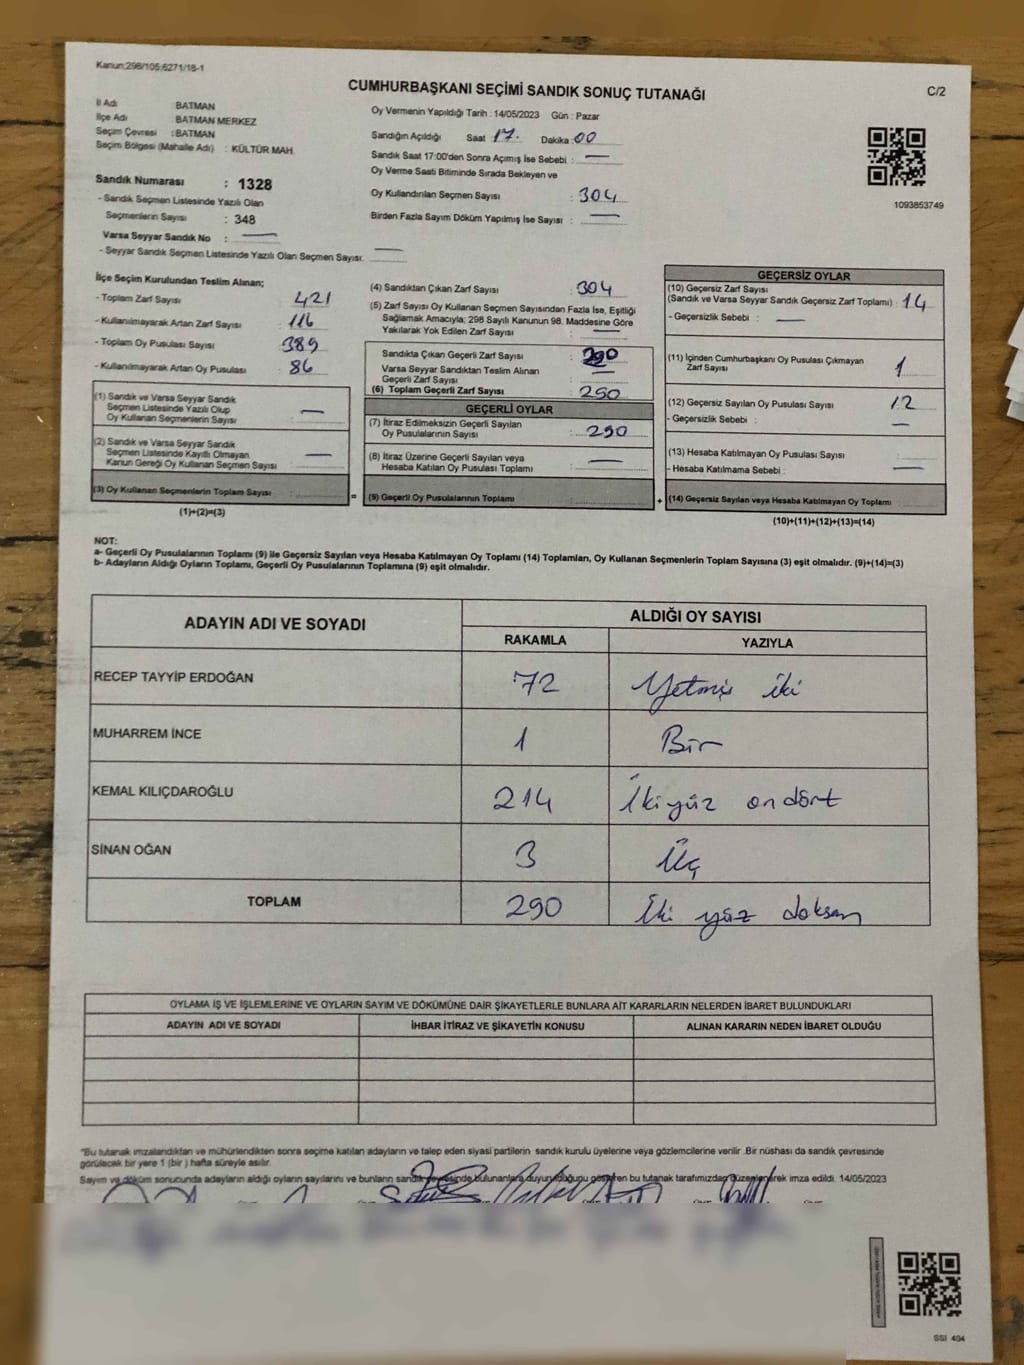 Kanun:298/105;6271/18-1
CUMHURBAŞKANI SEÇİMİ SANDIK SONUÇ TUTANAĞI
C/2
İl Adı BATMAN
İlçe Adı BATMAN MERKEZ
Seçim Çevresi : BATMAN
Seçim Bölgesi (Mahalle Adı) : KÜLTÜR MAH.
Sandık Numarası : 1328
- Sandık Seçmen Listesinde Yazılı Olan
Seçmenlerin Sayısı : 348
Varsa Seyyar Sandık No : —
- Seyyar Sandık Seçmen Listesinde Yazılı Olan Seçmen Sayısı: —
Oy Vermenin Yapıldığı Tarih : 14/05/2023 Gün : Pazar
Sandığın Açıldığı Saat 17. Dakika : 00
Sandık Saat 17:00'den Sonra Açımış İse Sebebi : —
Oy Verme Saati Bitiminde Sırada Bekleyen ve
Oy Kullandırılan Seçmen Sayısı : 304
Birden Fazla Sayım Döküm Yapılmış İse Sayısı : —
1093853749
İlçe Seçim Kurulundan Teslim Alınan;
- Toplam Zarf Sayısı 421
- Kullanılmayarak Artan Zarf Sayısı : 116
- Toplam Oy Pusulası Sayısı 389
- Kullanılmayarak Artan Oy Pusulası : 86
(1) Sandık ve Varsa Seyyar Sandık
Seçmen Listesinde Yazılı Olup
Oy Kullanan Seçmenlerin Sayısı : —
(2) Sandık ve Varsa Seyyar Sandık
Seçmen Listesinde Kayıtlı Olmayan
Kanun Gereği Oy Kullanan Seçmen Sayısı : —
(3) Oy Kullanan Seçmenlerin Toplam Sayısı :
(1)+(2)=(3)
(4) Sandıktan Çıkan Zarf Sayısı : 304
(5) Zarf Sayısı Oy Kullanan Seçmen Sayısından Fazla İse, Eşitliği
Sağlamak Amacıyla; 298 Sayılı Kanunun 98. Maddesine Göre
Yakılarak Yok Edilen Zarf Sayısı : —
Sandıkta Çıkan Geçerli Zarf Sayısı : 290
Varsa Seyyar Sandıktan Teslim Alınan
Geçerli Zarf Sayısı : —
(6) Toplam Geçerli Zarf Sayısı : 290
GEÇERLİ OYLAR
(7) İtiraz Edilmeksizin Geçerli Sayılan
Oy Pusulalarının Sayısı : 290
(8) İtiraz Üzerine Geçerli Sayılan veya
Hesaba Katılan Oy Pusulası Toplamı : —
= (9) Geçerli Oy Pusulalarının Toplamı :
GEÇERSİZ OYLAR
(10) Geçersiz Zarf Sayısı
(Sandık ve Varsa Seyyar Sandık Geçersiz Zarf Toplamı) : 14
- Geçersizlik Sebebi : —
(11) İçinden Cumhurbaşkanı Oy Pusulası Çıkmayan
Zarf Sayısı : 1
(12) Geçersiz Sayılan Oy Pusulası Sayısı : 12
- Geçersizlik Sebebi : —
(13) Hesaba Katılmayan Oy Pusulası Sayısı :
- Hesaba Katılmama Sebebi : —
+ (14) Geçersiz Sayılan veya Hesaba Katılmayan Oy Toplamı :
(10)+(11)+(12)+(13)=(14)
NOT:
a- Geçerli Oy Pusulalarının Toplamı (9) ile Geçersiz Sayılan veya Hesaba Katılmayan Oy Toplamı (14) Toplamları, Oy Kullanan Seçmenlerin Toplam Sayısına (3) eşit olmalıdır. (9)+(14)=(3)
b- Adayların Aldığı Oyların Toplamı, Geçerli Oy Pusulalarının Toplamına (9) eşit olmalıdır.
ADAYIN ADI VE SOYADI ALDIĞI OY SAYISI
RAKAMLA YAZIYLA
RECEP TAYYİP ERDOĞAN 72 Yetmiş iki
MUHARREM İNCE 1 Bir
KEMAL KILIÇDAROĞLU 214 İki yüz on dört
SİNAN OĞAN 3 Üç
TOPLAM 290 İki yüz doksan
OYLAMA İŞ VE İŞLEMLERİNE VE OYLARIN SAYIM VE DÖKÜMÜNE DAİR ŞİKAYETLERLE BUNLARA AİT KARARLARIN NELERDEN İBARET BULUNDUKLARI
ADAYIN ADI VE SOYADI İHBAR İTİRAZ VE ŞİKAYETİN KONUSU ALINAN KARARIN NEDEN İBARET OLDUĞU
"Bu tutanak imzalandıktan ve mühürlendikten sonra seçime katılan adayların ve talep eden siyasi partilerin sandık kurulu üyelerine veya gözlemcilerine verilir .Bir nüshası da sandık çevresinde
görülecek bir yere 1 (bir ) hafta süreyle asılır.
Sayım ve döküm sonucunda adayların aldığı oyların sayılarını ve bunların sandık çevresinde bulunanlara duyurulduğunu gösteren bu tutanak tarafımızdan düzenlenerek imza edildi. 14/05/2023
SSI 404